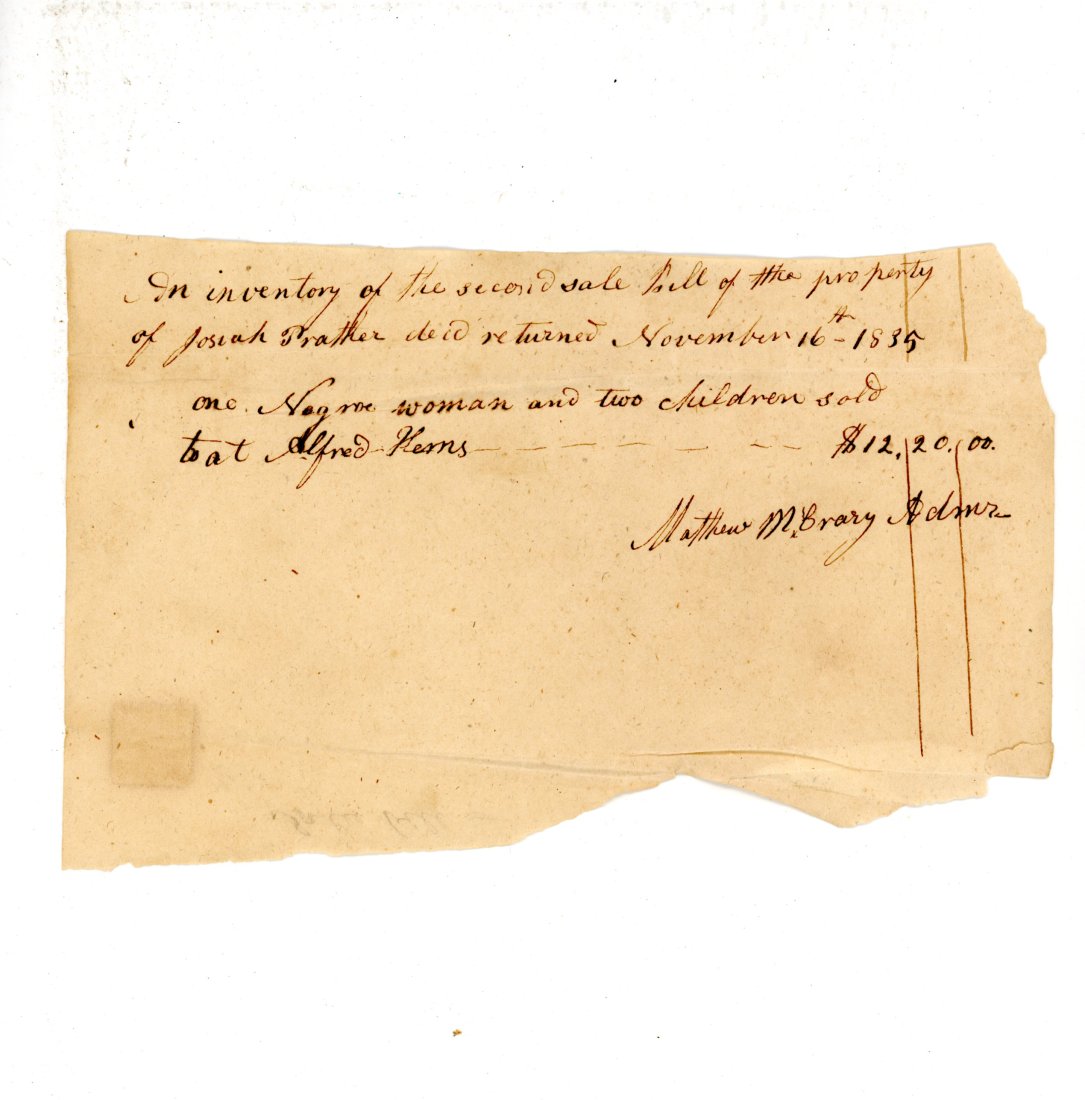 An inventory of the second sale bill of tthe property
of Josiah Prather decd returned November 16th - 1835
one Negroe woman and two children sold
to at Alfred Kerns - - - - - - - $12,20.00.
Mathew McCrary Admr